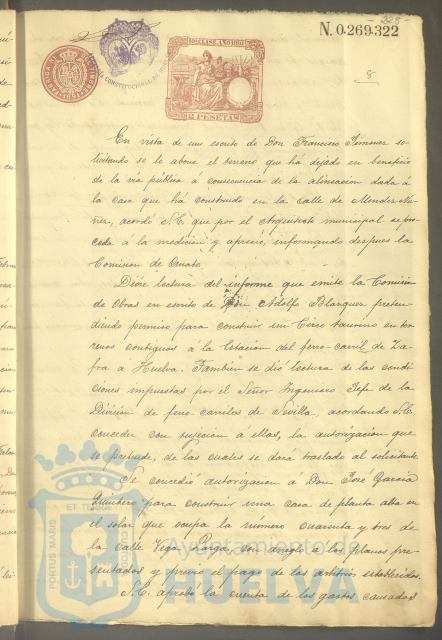 228
N. 0.269,322
8
10ª CLASE. AÑO 1891
2 PESETAS
En vista de un escrito de Don Francisco Jimenez so-
licitando se le abone el terreno que há dejado en beneficio
de la via pública á consecuencia de la alineacion dada á
la casa que há construido en la calle de Mendez Nu-
ñez, acordó S.E. que por el Arquitecto municipal se pro-
ceda á la medicion y aprecio, informando despues la
Comision de Ornato.
Dióse lectura del informe que emite la Comision
de Obras en escrito de Don Adolfo Blazquez preten-
diendo permiso para construir un Circo taurino en ter-
renos contiguos á la Estacion del ferro-carril de Za-
fra á Huelva. Tambien se dió lectura de las condi-
ciones impuestas por el Señor Ingeniero Jefe de la
Division de ferro-carriles de Sevilla, acordando S.E.
conceder con sujecion á ellas, la autorizacion que
se pretende, de las cuales se dará traslado al solicitante.
Se concedió autorizacion á Don José Garcia
para construir una casa de planta alta en
el solar que ocupa la número cuarenta y tres de
la calle Vega Larga, con arreglo á los planos pre-
sentados y previo el pago de los arbitrios establecidos.
S.E. aprobó la cuenta de los gastos causados
PORTUS MARIS
ET TERRAE
CUSTODIA
Ayuntamiento de
HUELVA